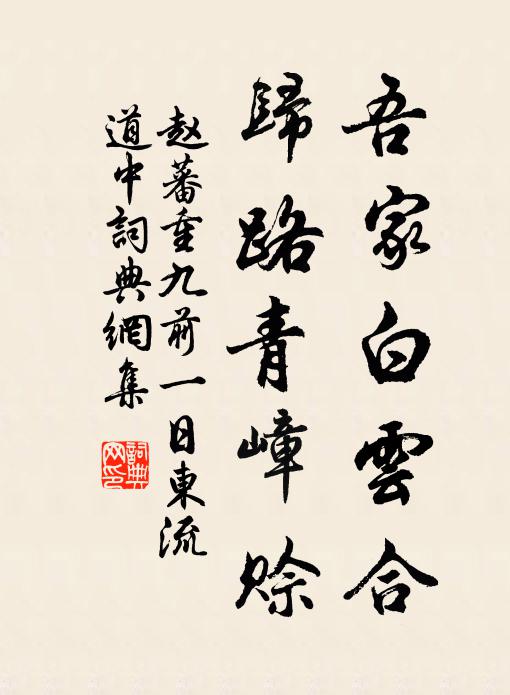 吾家白雲合
歸路青嶂賒
赵蕃重九前一日東流
道中詞典網集
詞典网印